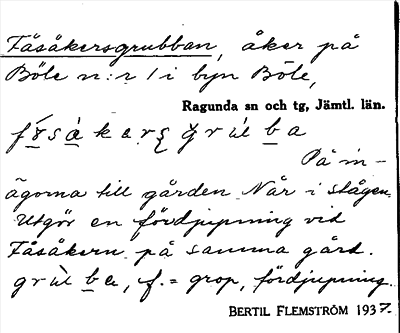 Fåsåkersgrubban, åker på
Böle n:r 1 i byn Böle,
Ragunda sn och tg, Jämtl. län.
På in-
ägorna till gården. Når i stågen.
Utgör en fördjupning vid
Fåsåkern på samma gård.
f. = grop, fördjupning.
BERTIL FLEMSTRÖM 1937.